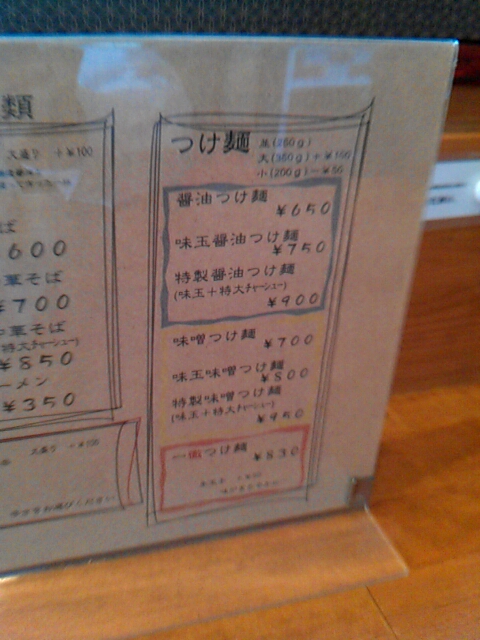 類
大盛り +¥100
ば
600
華そば
¥700
中華そば
特大チャーシュー)
¥850
ーメン
¥350
大盛り +¥100
つけ麺
並(250g)
大(350g)+¥100
小(200g)-¥50
醤油つけ麺
¥650
味玉醤油つけ麺
¥750
特製醤油つけ麺
(味玉+特大チャーシュー)
¥900
味噌つけ麺
¥700
味玉味噌つけ麺
¥800
特製味噌つけ麺
(味玉+特大チャーシュー)
¥950
つけ麺
¥830